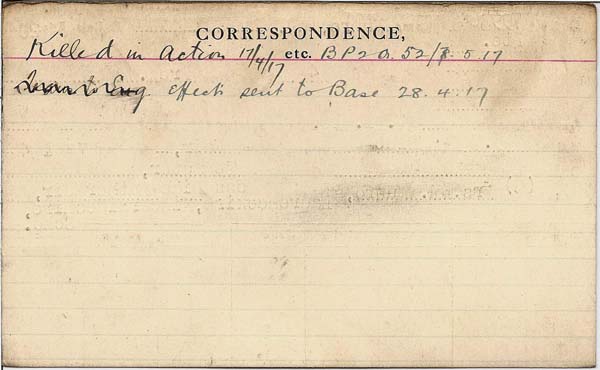 CORRESPONDENCE,
Killed in action 17/4/17 etc. BP20. 52/7.5.17
Effects sent to Base 28.4.17